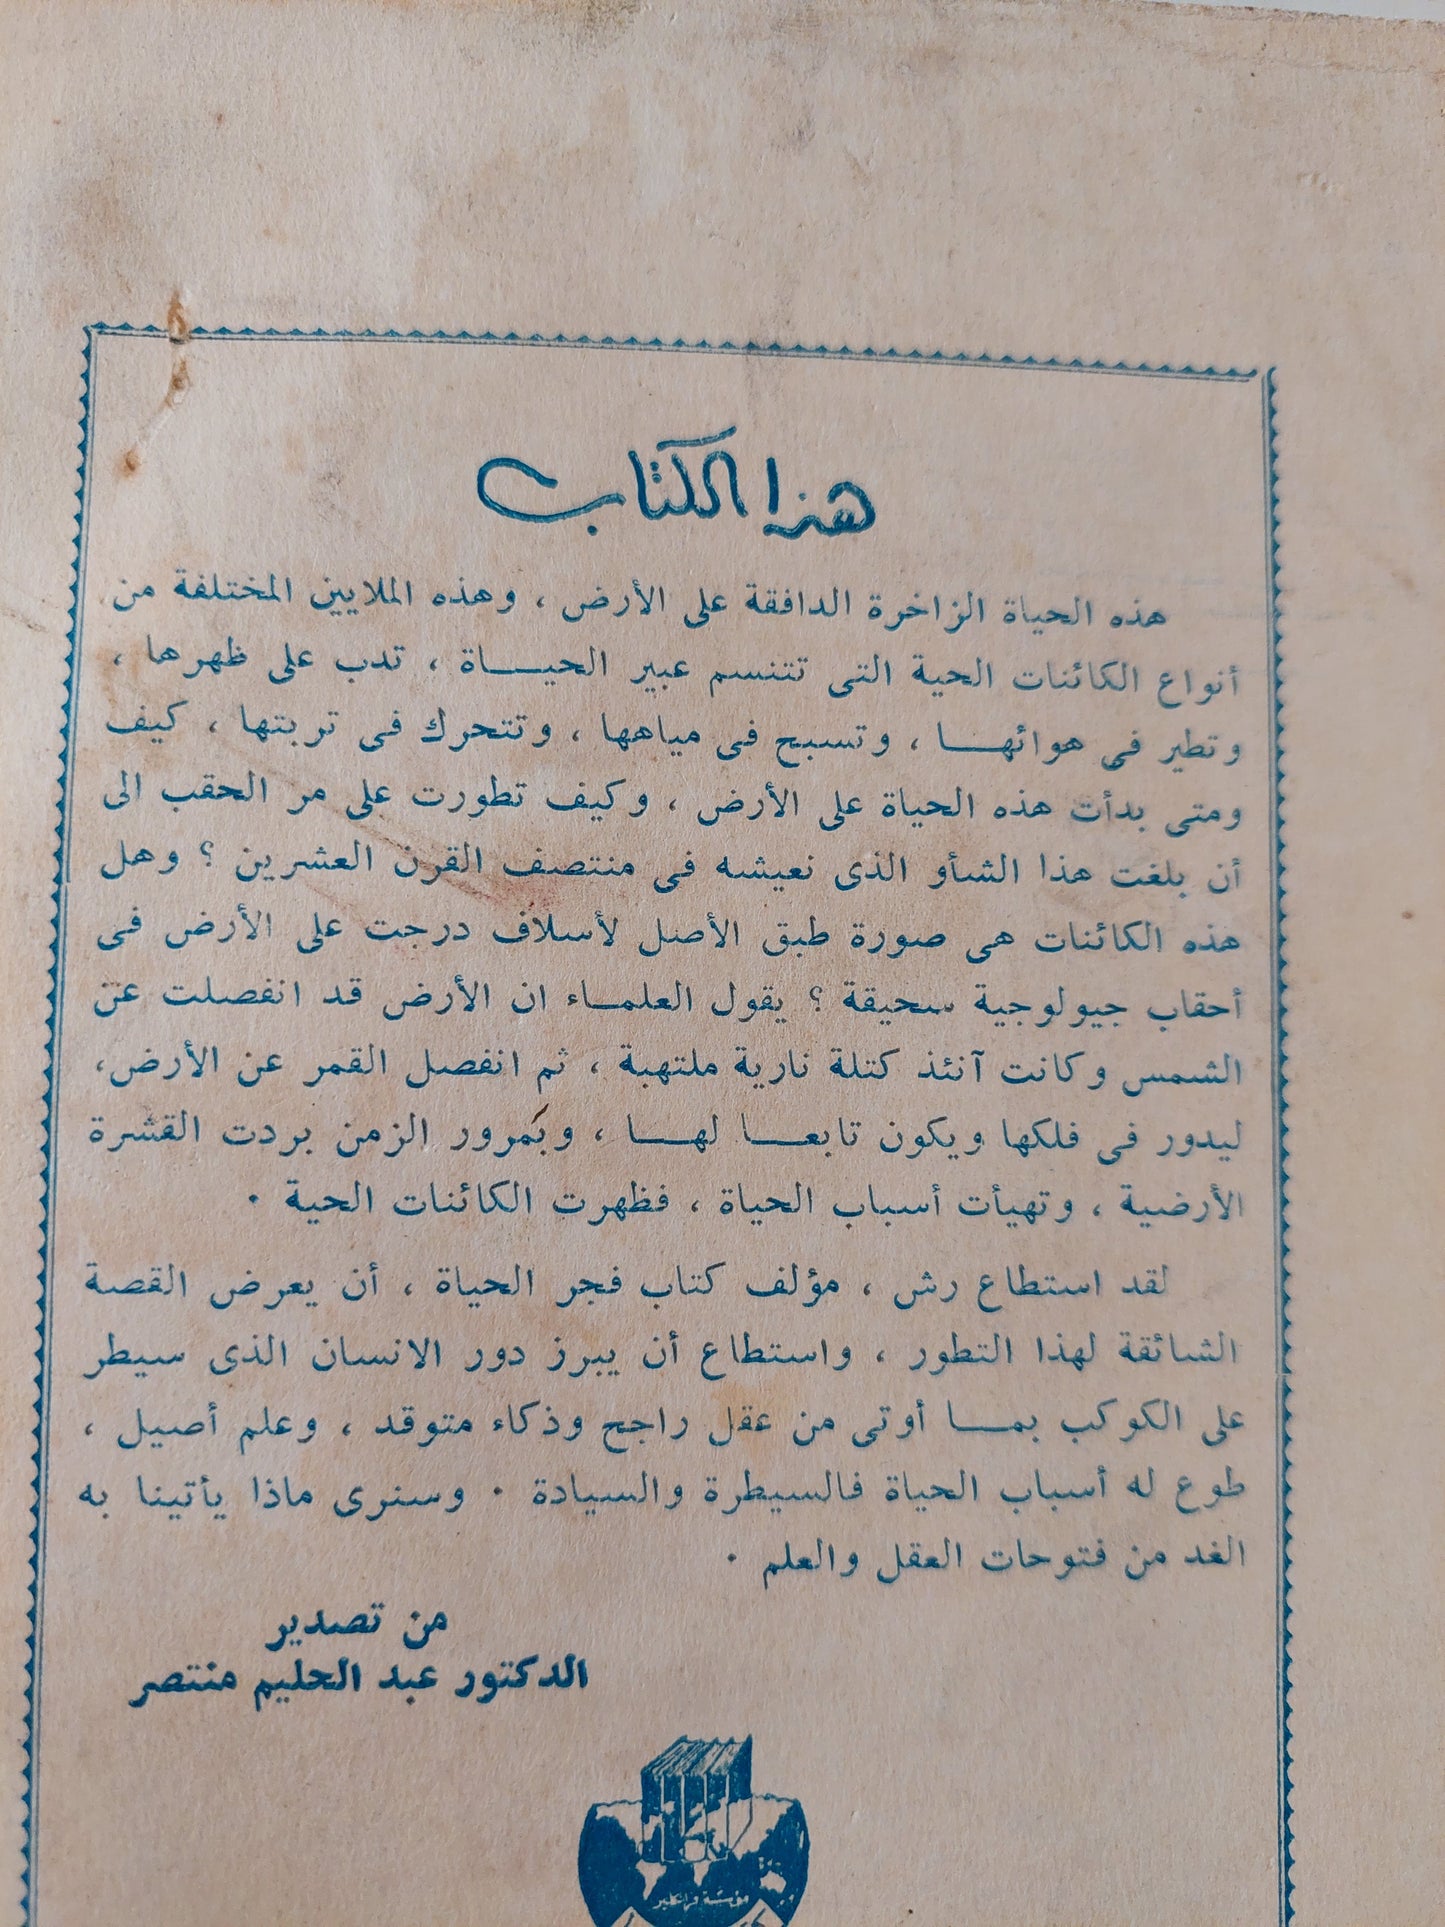 هذا الكتاب
هذه الحياة الزاخرة الدافقة على الأرض ، وهذه الملايين المختلفة من
أنواع الكائنات الحية التى تتنسم عبير الحيـــاة ، تدب على ظهرها ،
وتطير فى هوائهـــا ، وتسبح فى مياهها ، وتتحرك فى تربتها ، كيف
ومتى بدأت هذه الحياة على الأرض ، وكيف تطورت على مر الحقب الى
أن بلغت هذا الشأو الذى نعيشه فى منتصف القرن العشرين ؟ وهل
هذه الكائنات هى صورة طبق الأصل لأسلاف درجت على الأرض فى
أحقاب جيولوجية سحيقة ؟ يقول العلمـاء ان الأرض قد انفصلت عن
الشمس وكانت آنئذ كتلة نارية ملتهبة ، ثم انفصل القمر عن الأرض،
ليدور فى فلكها ويكون تابعـــا لهـــا ، وبمرور الزمن بردت القشرة
الأرضية ، وتهيأت أسباب الحياة ، فظهرت الكائنات الحية ٠
لقد استطاع رش ، مؤلف كتاب فجر الحياة ، أن يعرض القصة
الشائقة لهذا التطور ، واستطاع أن يبرز دور الانسان الذى سيطر
على الكوكب بمـــا أوتى من عقل راجح وذكاء متوقد ، وعلم أصيل ،
طوع له أسباب الحياة فالسيطرة والسيادة ٠ وسنرى ماذا يأتينا به
الغد من فتوحات العقل والعلم ٠
من تصدير
الدكتور عبد الحليم منتصر
مؤسسة فرانكلين